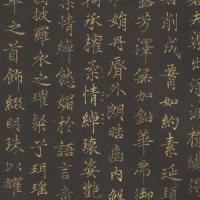 若削成腰如約素延頸
芳澤無加鉛華弗御
娟丹脣外朗皓齒內鮮
承權瓌姿艷
情綽態媚於語言奇
披羅衣之璀粲兮珥瑤
之首飾綴明珠以耀